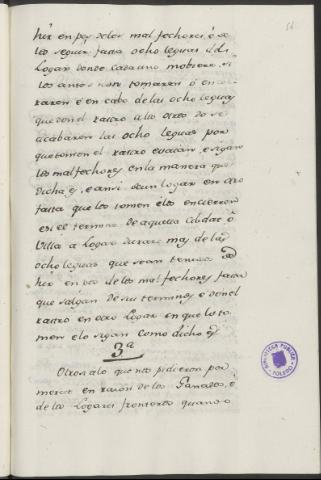 hir en pos de los malfechores, é de
los seguir fasta ocho leguas del
Logar donde cada uno moviere, si
los antes non tomaren ó encer
raren é en cabo de las ocho leguas
que den el rastro a los otros do se
acabaren las ocho leguas por
que tomen el rastro e vaian, e sigan
los malfechores en la manera que
dicha es, e ansi de un logar en otro
fasta que los tomen ó los encierren
e si el termino de aquella Cibdat ó
Villa o Logar durare mas de las
ocho leguas que sean tenudos de
hir en pos de los malfechores fasta
que salgan de sus terminos é den el
rastro en otro Logar en que lo to
men e lo sigan como dicho es
3ª
Otrosi a lo que nos pidieron por
merced en razon de los Ganados, é
de los Logares fronteros quando
BIBLIOTECA PUBLICA
TOLEDO